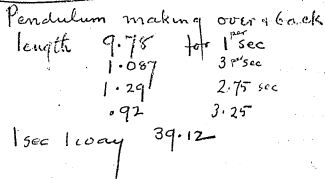 Pendulum making over & back
length 9.78 for 1 per sec
1.087 3 per sec
1.29 2.75 sec
.92 3.25
1 sec 1 way 39.12